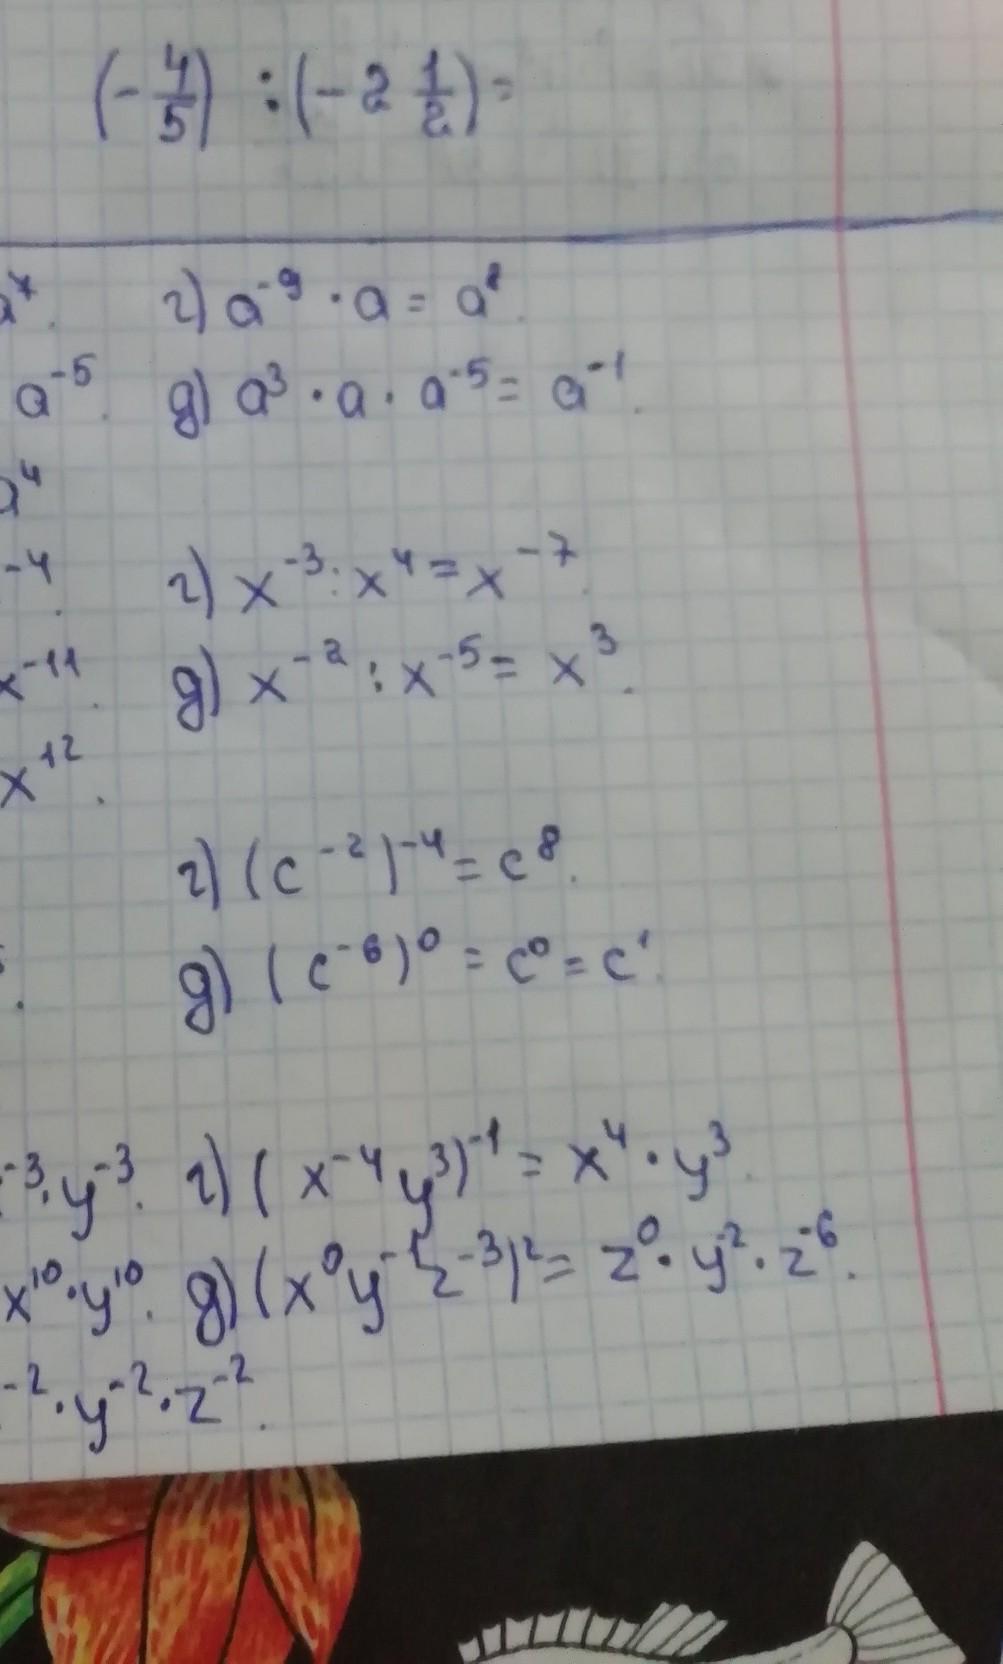 (-4/5) : (-2 1/2) =
a⁷. г) a⁻⁹ · a = a⁸.
a⁻⁵. д) a³ · a · a⁻⁵ = a⁻¹.
a⁴
-4. г) x⁻³ : x⁴ = x⁻⁷.
x⁻¹¹. д) x⁻² : x⁻⁵ = x³.
x¹².
г) (c⁻²)⁻⁴ = c⁸.
д) (c⁻⁶)⁰ = c⁰ = c¹.
⁻³ · y⁻³. г) (x⁻⁴y³)⁻¹ = x⁴ · y³.
x¹⁰ · y¹⁰. д) (x⁰y⁻¹z⁻³)² = z⁰ · y⁻² · z⁻⁶.
⁻² · y⁻² · z⁻².